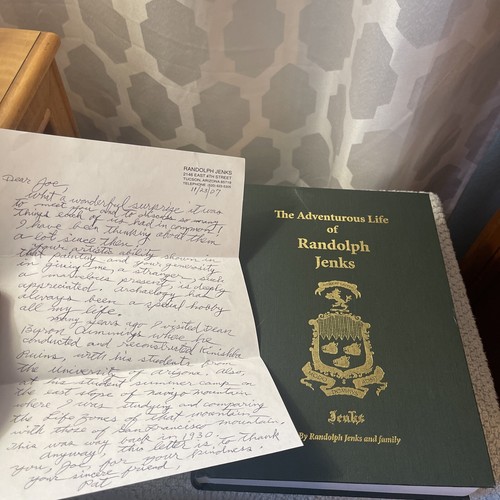 RANDOLPH JENKS
2146 EAST 4TH STREET
TUCSON, ARIZONA 85719
11/23/07
Dear Joe,
What a wonderful surprise it was
to meet you and to discuss so many
things each of us had in common!
I have been thinking about them
a lot since then.
Your artistic ability shown in
that painting and your generosity
in giving me, a stranger, such
a marvelous present, is deeply
appreciated. Archaeology has
always been a special hobby
all my life.
Many years ago I visited Dean
Byron Cummings where he
conducted and reconstructed Kinishba
Ruins, with his students from
the University of Arizona. Also,
at his student summer camp on
the east slope of Navajo mountain
where I was studying and comparing
the life zones of that mountain
with those of San Francisco mountain.
This was way back in 1930.
Anyway, this letter is to thank
you, Joe, for your kindness.
your sincere friend,
Pat
The Adventurous Life
of
Randolph
Jenks
Jenks
By Randolph Jenks and family